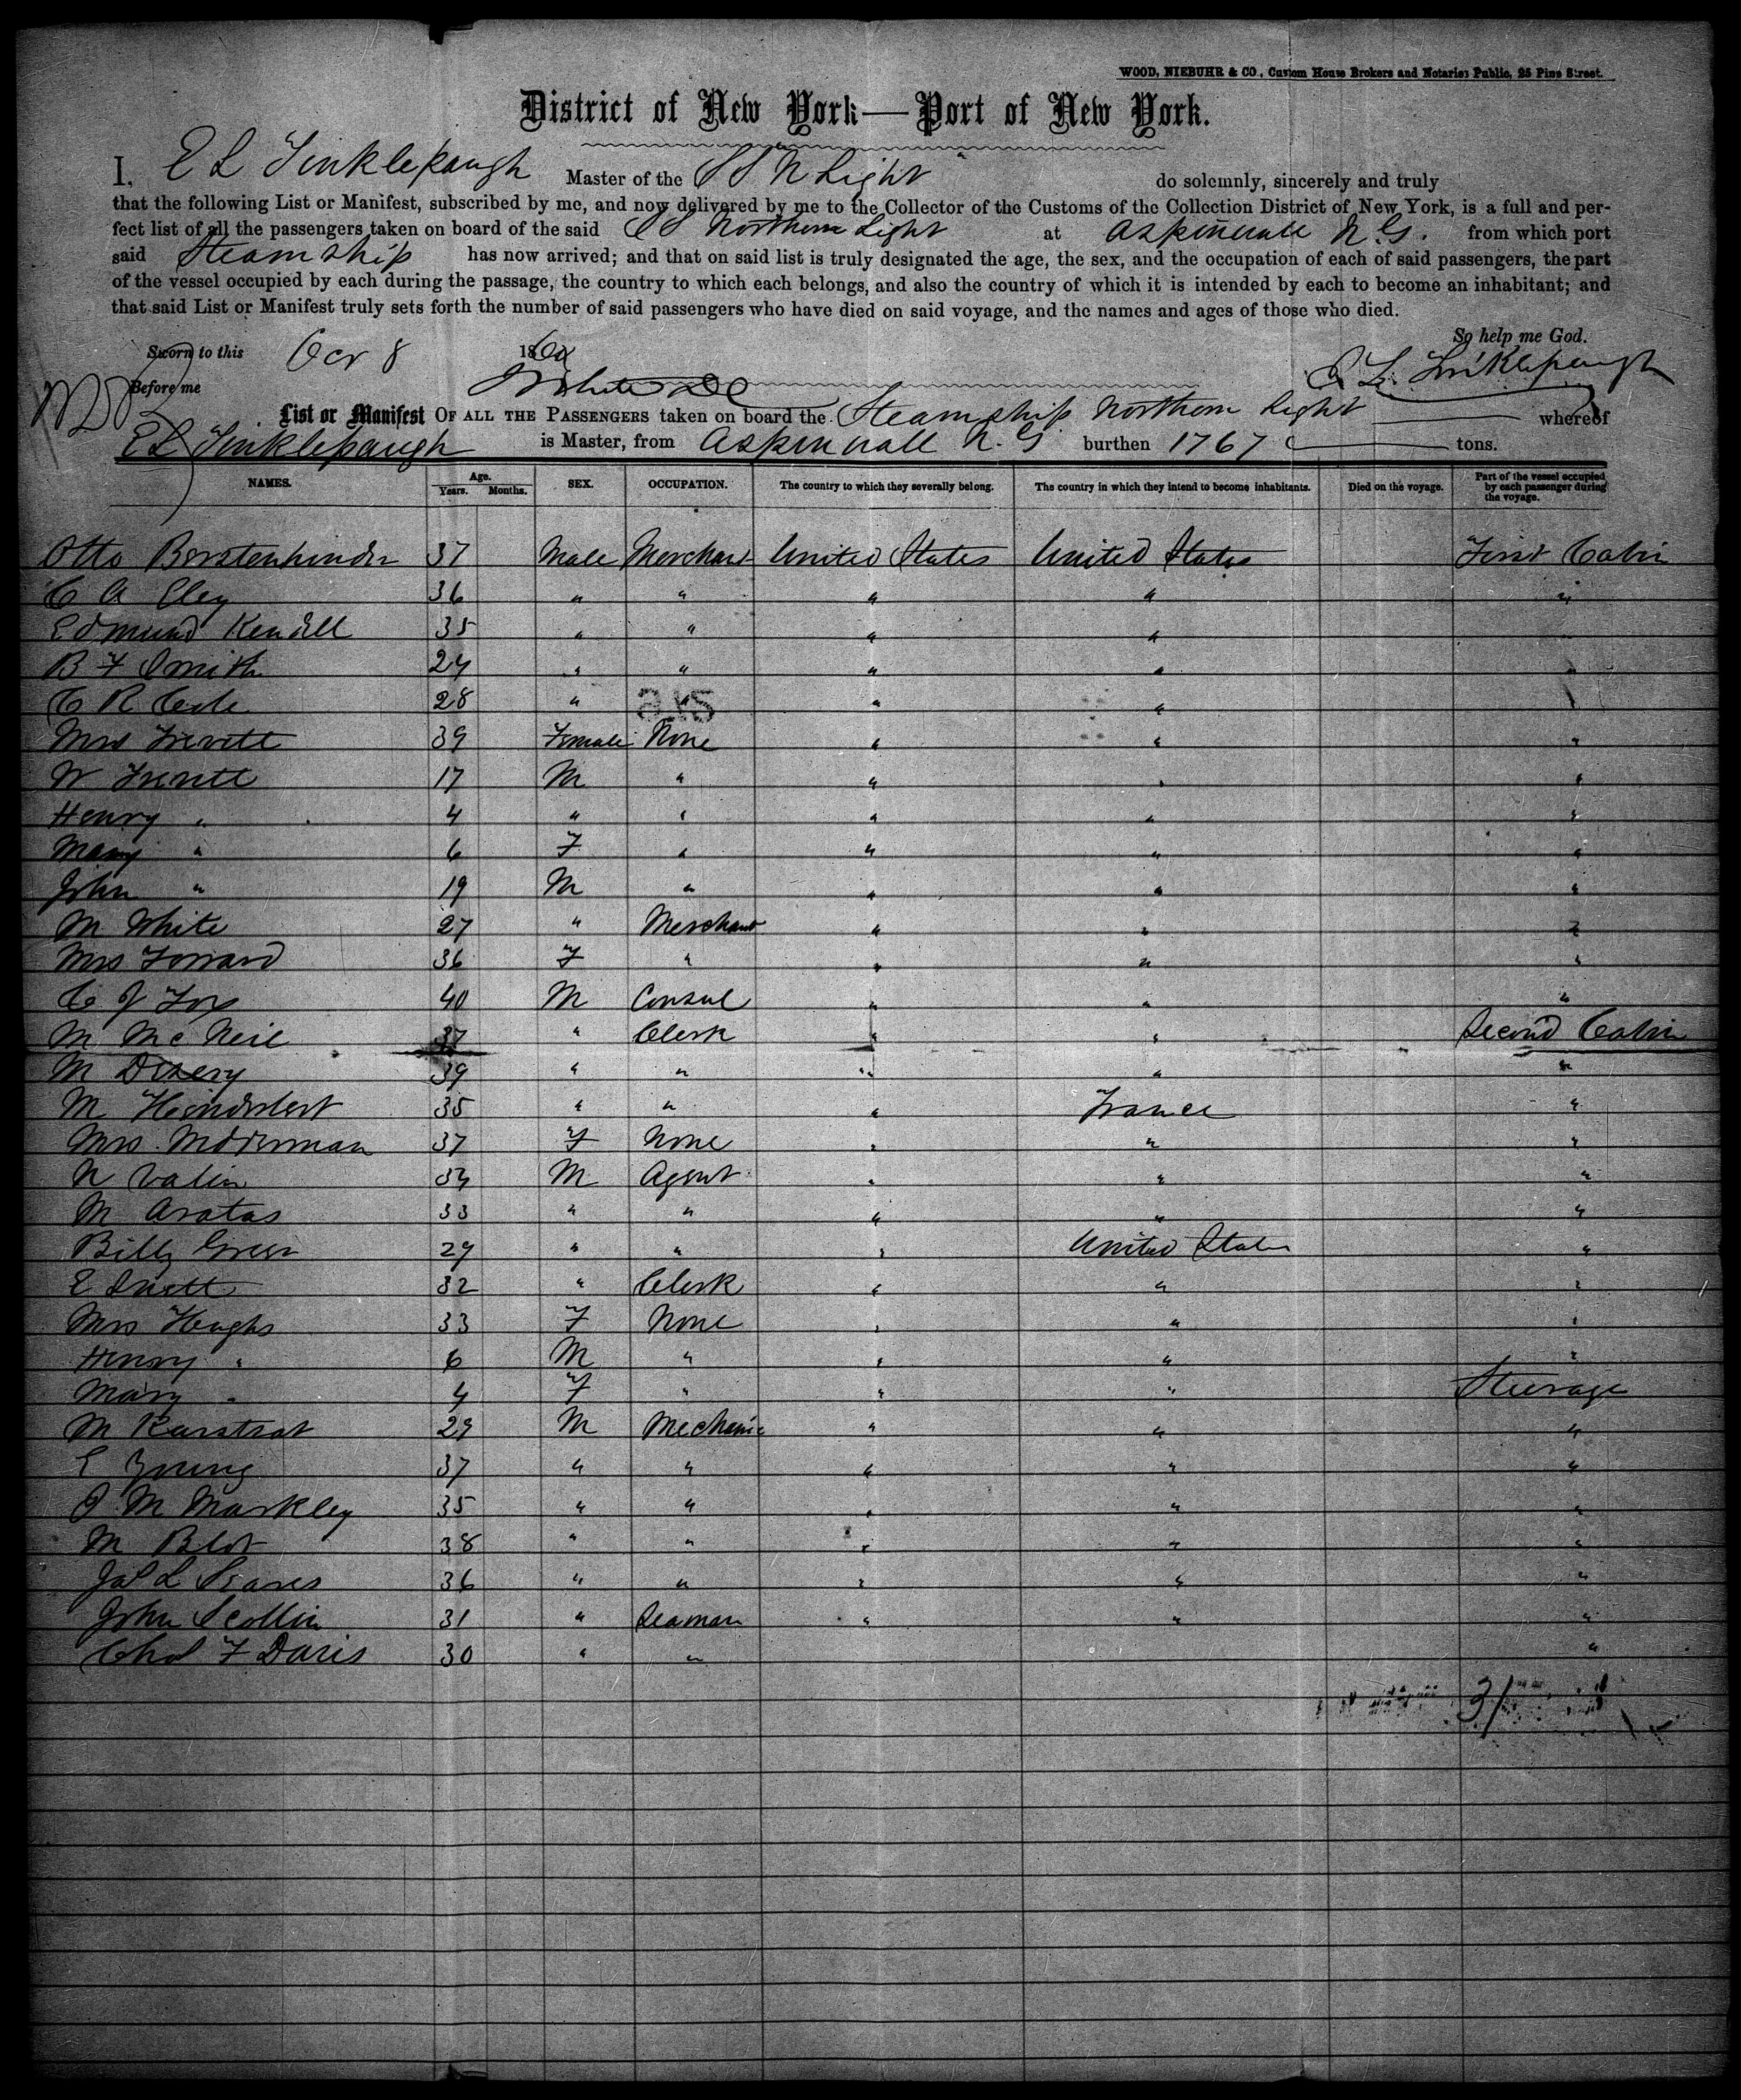 WOOD, NIEBUHR & CO., Custom House Brokers and Notaries Public, 25 Pine Street.
District of New York—Port of New York.
I, E L Tinklepaugh Master of the SS "N Light" do solemnly, sincerely and truly
that the following List or Manifest, subscribed by me, and now delivered by me to the Collector of the Customs of the Collection District of New York, is a full and per-
fect list of all the passengers taken on board of the said SS Northern Light at Aspinwall N.G. from which port
said Steamship has now arrived; and that on said list is truly designated the age, the sex, and the occupation of each of said passengers, the part
of the vessel occupied by each during the passage, the country to which each belongs, and also the country of which it is intended by each to become an inhabitant; and
that said List or Manifest truly sets forth the number of said passengers who have died on said voyage, and the names and ages of those who died.
So help me God.
Sworn to this Oct 8 186
E L Tinklepaugh
Before me
List or Manifest OF ALL THE PASSENGERS taken on board the Steamship Northern Light whereof
E L Tinklepaugh is Master, from Aspinwall N. G burthen 1767 tons.
NAMES. Age. Years. Months. SEX. OCCUPATION. The country to which they severally belong. The country in which they intend to become inhabitants. Died on the voyage. Part of the vessel occupied by each passenger during the voyage.
Otto 37 Male Merchant United States United States First Cabin
C A Cley 36 " " " " "
Edmund Kendell 35 " " " "
B F Smith 24 " " " " "
C R Cole 28 " " "
Mrs Trevett 39 Female None " " "
W Trevett 17 M " " " "
Henry " 4 " " " " "
Mary " 6 F " " " "
John " 19 M " " " "
M White 27 " Merchant " " "
Mrs Forrard 36 F " " " "
C J Fox 40 M Consul " " "
M McNeil 37 " Clerk " " Second Cabin
M 39 " " " " "
M 35 " " " France "
Mrs 37 F None " " "
N Valin 34 M Agent " " "
M Aratas 33 " " " " "
Billy Green 29 " " " United States "
E 32 " Clerk " " "
Mrs Heughs 33 F None " " "
Henry " 6 M " " " "
Mary " 4 F " " " Steerage
M Karstrat 29 M Mechanic " " "
E Young 37 " " " " "
J M Markley 35 " " " " "
M Blot 38 " " " " "
Jas L Seares 36 " " " " "
John Scollin 31 " Seaman " " "
Chas F Davis 30 " " "
31